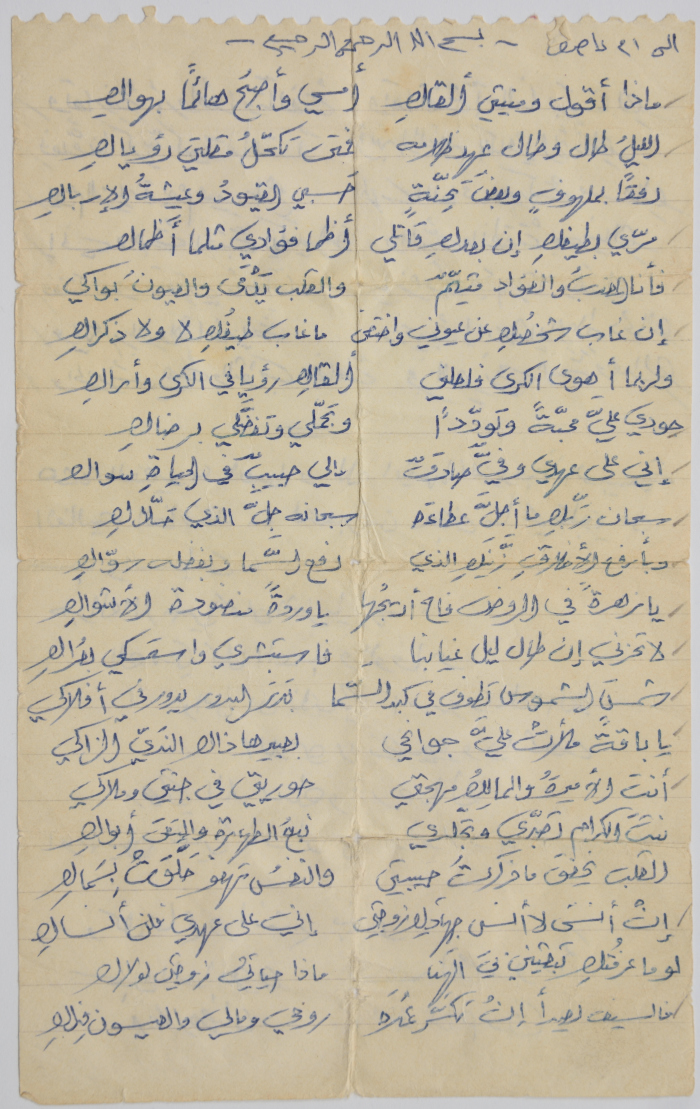 الى ام عاصم ~ بسم الله الرحمن الرحيم ~
ماذا أقول ومنيتي ألقاكِ أمسي وأصبحُ هائمًا بهواكِ
الليلُ طال وطال عهد ظلامه فمتى تكحّلُ مقلتي رؤياكِ
رفقًا بملهوفٍ وبعضَ تحنّنةٍ حسبي القيودُ وعيشةُ الإرباكِ
مرّي بطيفكِ إن بعدكِ قاتلي أظما فؤادي مثلما أظماكِ
فأنا المعذبُ والفؤاد متيّمٌ والقلب يَدْمَى والعيونُ بواكي
إن غاب شخصُكِ عن عيوني واختفى ما غاب طيفُكِ لا ولا ذكراكِ
ولربما أهوى الكرى فلعلني ألقاكِ رؤيا في الكرى وأراكِ
جودي عليَّ محبّةً وتودّدًا وتجمّلي وتفضّلي برضاكِ
إني على عهدي وفيٌّ صادقٌ مالي حبيبٌ في الحياةِ سواكِ
سبحان ربّكِ ما أجلَّ عطاءَه سبحانه جلَّ الذي حلّاكِ
وبأرفع الأخلاقِ زيّنكِ الذي رفع السّما وبفضله سوّاكِ
يا زهرةً في الروض فاح أريجُها يا وردةً منضودة الأشواكِ
لا تحزني إن طال ليل غيابنا فاستبشري واستمسكي بعُراكِ
شمسَ الشموس تطوف في كبد السّما بدرَ البدور يدور في أفلاكي
يا باقةً ملأتْ عليَّ جوانحي بعبيرها ذاك النديّ الزاكي
أنتِ الأميرةُ والمالكُ مهجتي حوريتي في جنتي وملاكي
بنتَ الكرام تصبّري وتجلدي نبعَ الطهارة والتقى أبواكِ
القلب يخفق ما ذكرتُ حبيبتي والنفسُ تهفو حلّقتْ بسَماكِ
إنْ أنسَ لا أنسى جهادكِ زوجتي إني على عهدي فلن أنساكِ
لو ما عرفتُكِ تبعثين فيَّ الهنا ماذا حياتي زوجتي لولاكِ
فالسيف يصدأ إنْ تكسّر غمدَه روحي ومالي والعيون فِداكِ